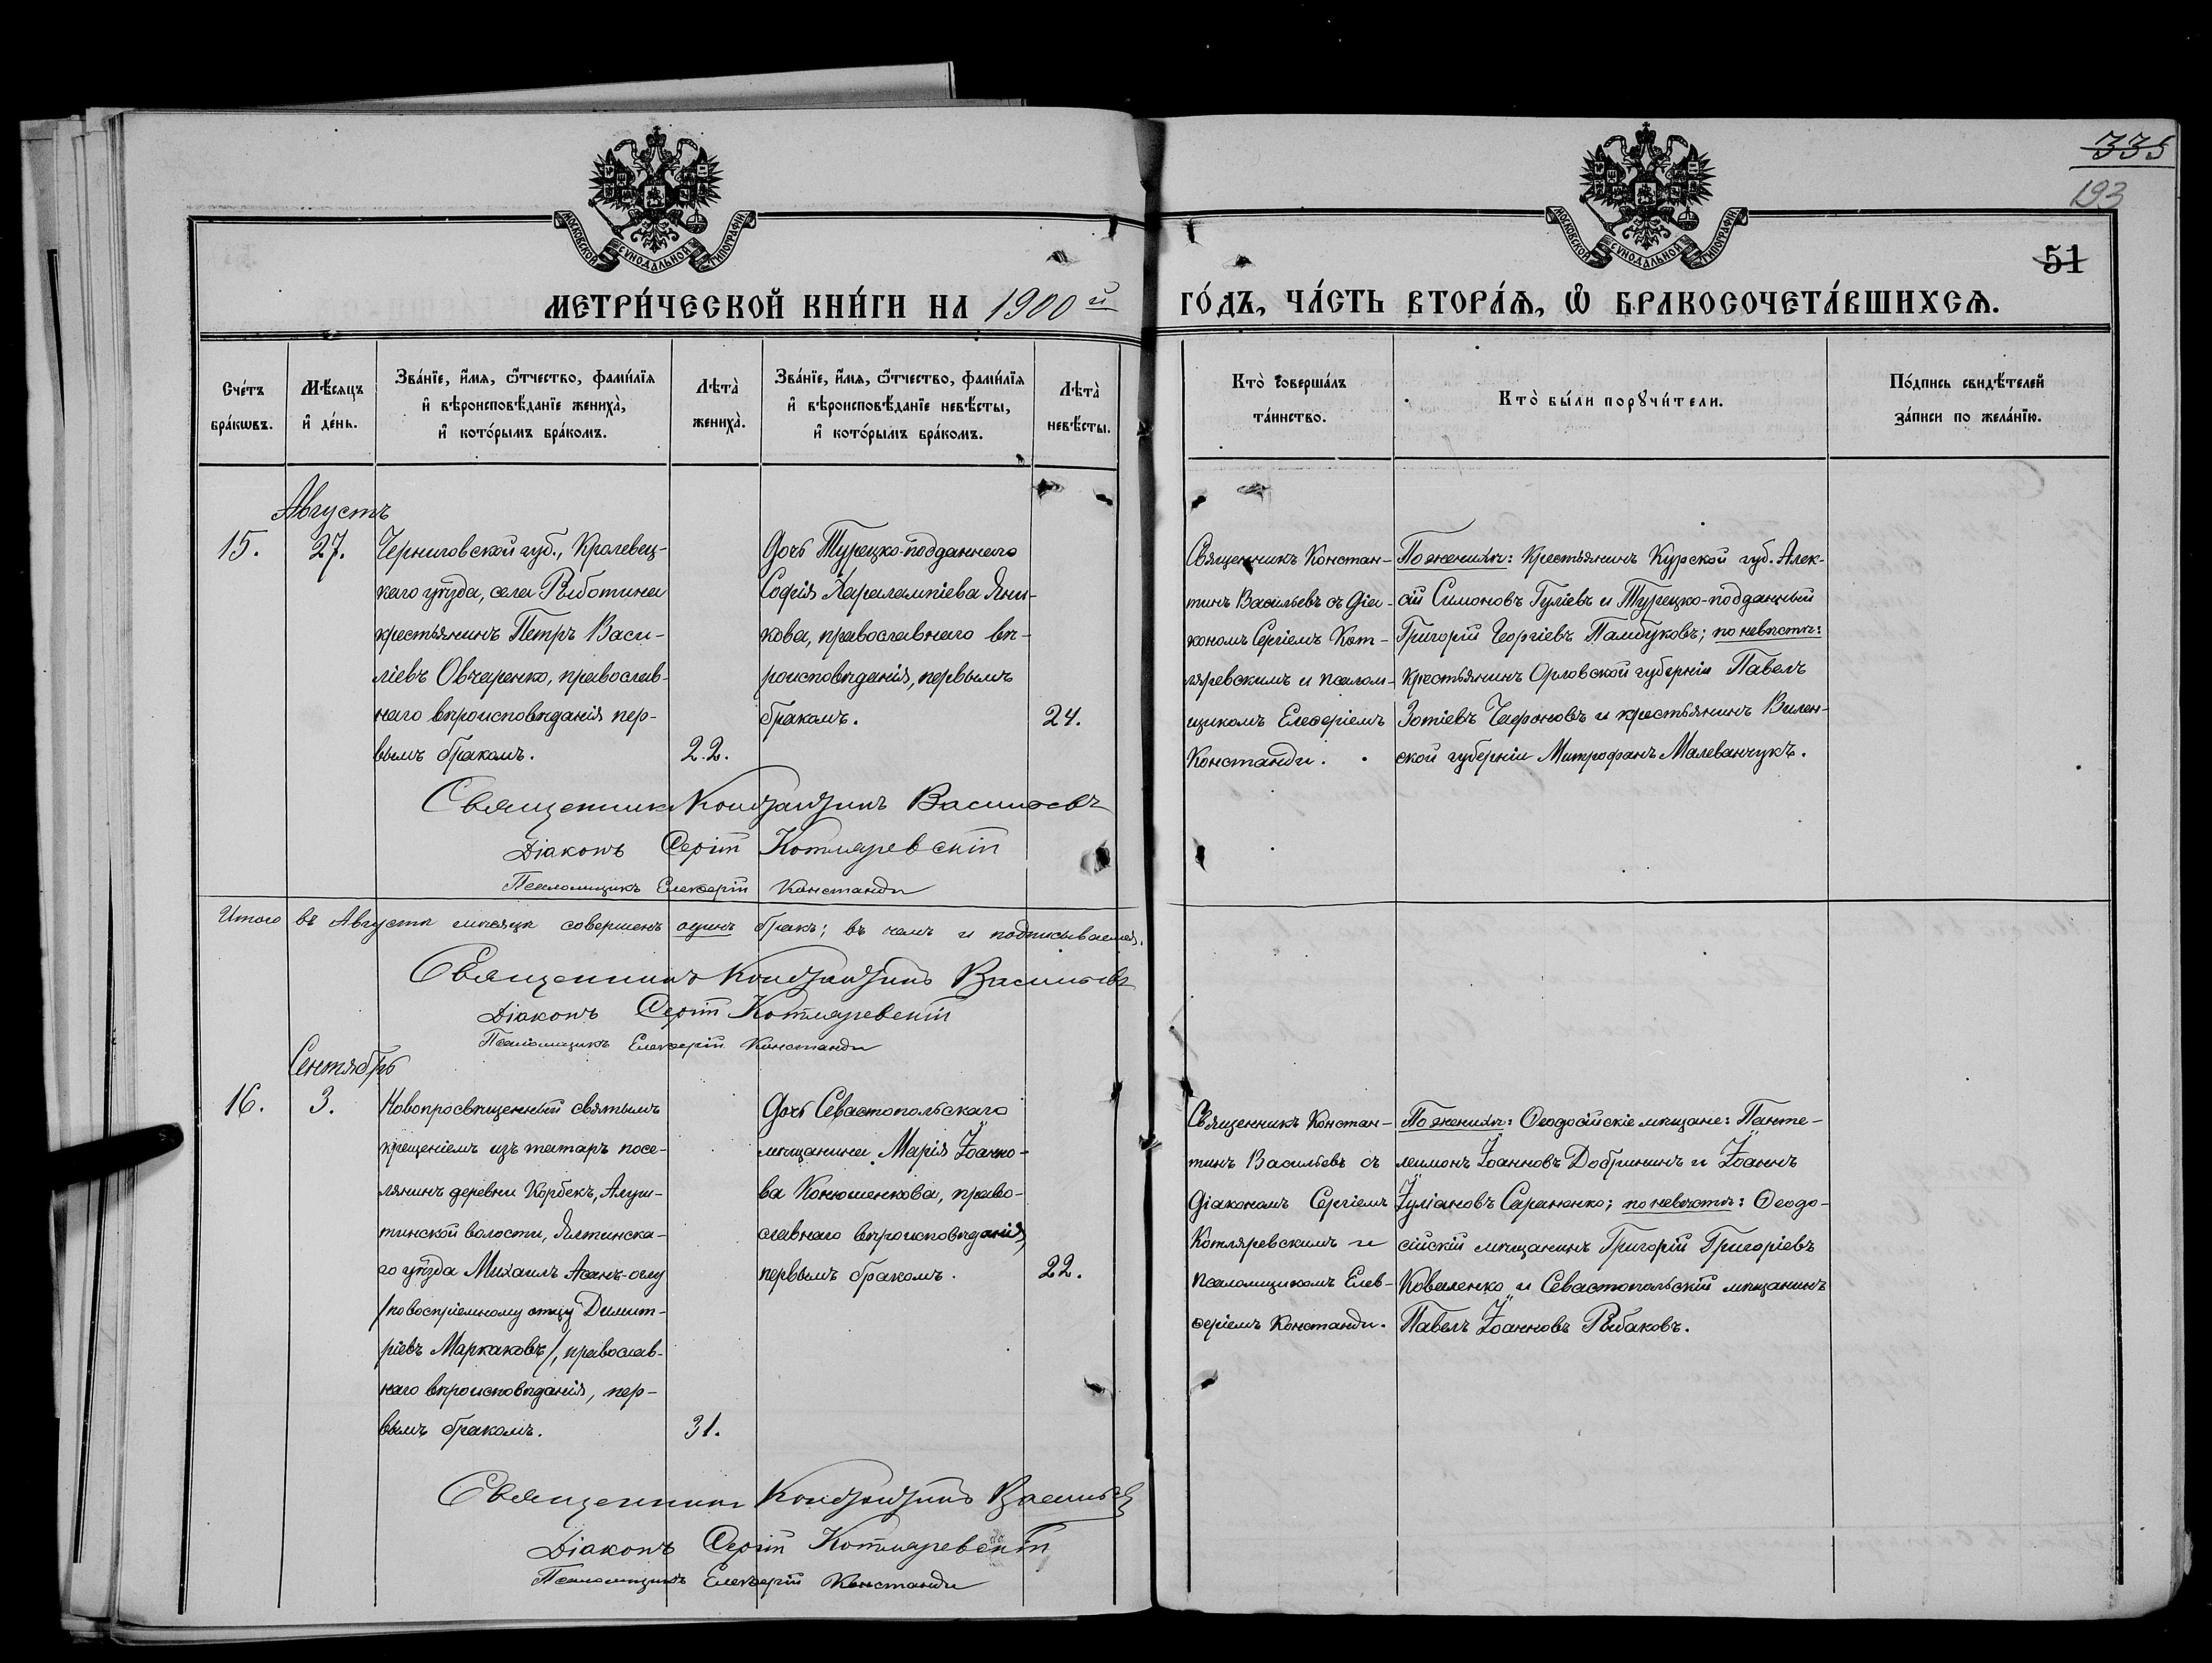 335
193
51
МОСКОВСКОЙ СУНОДАЛЬНОЙ ТИПОГРАФІИ
МОСКОВСКОЙ СУНОДАЛЬНОЙ ТИПОГРАФІИ
МЕТРИ́ЧЕСКОЙ КНИ́ГИ НА 1900й ГО́ДЪ, ЧА́СТЬ ВТОРА́Ѧ, Ѽ БРАКОСОЧЕТА́ВШИХСѦ.
Сче́тъ
бра́кѡвъ.
Мѣ́сяцъ
и҆ де́нь.
Зва́нїе, и҆́мѧ, ѻ҆́тчество, фами́лїѧ
и҆ вѣроисповѣ́данїе жениха̀,
и҆ кото́рымъ бра́комъ.
Лѣта̀
жениха̀.
Зва́нїе, и҆́мѧ, ѻ҆́тчество, фами́лїѧ
и҆ вѣроисповѣ́данїе невѣ́сты,
и҆ кото́рымъ бра́комъ.
Лѣта̀
невѣ́сты.
Кто̀ соверша́лъ
та́инство.
Кто̀ бы́ли порꙋчи́тели.
По́дпись свидѣ́телей
за́писи по жела́нїю.
Августъ
15.
27.
Черниговской губ., Кролевец-
каго уѣзда, села Рыботина
крестьянинъ Петръ Васи-
ліевъ Овчаренко, православ-
наго вѣроисповѣданія пер-
вымъ бракомъ.
22.
Дочь Турецко-подданнаго
Софія Харалампіева Яни-
кова, православнаго вѣ-
роисповѣданія, первымъ
бракомъ.
24.
Священникъ Констан-
тинъ Васильевъ съ діа-
кономъ Сергіемъ Кот-
ляревскимъ и псалом-
щикомъ Елевѳеріемъ
Констанди.
По женихѣ: Крестьянинъ Курской губ. Алек-
сѣй Симоновъ Гуліевъ и Турецко-подданный
Григорій Георгіевъ Памбуковъ; по невѣстѣ:
крестьянинъ Орловской губерніи Павелъ
Зотіевъ и крестьянинъ Вилен-
ской губерніи Митрофанъ Малеванчукъ.
Священникъ Константинъ Васильевъ
Діаконъ Сергій Котляревскій
Псаломщикъ Елевѳерій Констанди
Итого въ Августѣ мѣсяцѣ совершенъ одинъ бракъ; въ чемъ и подписываемся.
Священникъ Константинъ Васильевъ
Діаконъ Сергій Котляревскій
Псаломщикъ Елевѳерій Констанди
Сентябрь
16.
3.
Новопросвѣщенный святымъ
крещеніемъ изъ татаръ посе-
лянинъ деревни Корбекъ, Алуш-
тинской волости, Ялтинска-
го уѣзда Михаилъ Асанъ-оглу
/по воспріемному отцу Димит-
ріевъ Маркаковъ/, православ-
наго вѣроисповѣданія, пер-
вымъ бракомъ.
31.
Дочь Севастопольскаго
мѣщанина Марія Іоанно-
ва Конюшенкова, право-
славнаго вѣроисповѣданія,
первымъ бракомъ.
22.
Священникъ Констан-
тинъ Васильевъ съ
діакономъ Сергіемъ
Котляревскимъ и
псаломщикомъ Елев-
ѳеріемъ Констанди.
По женихѣ: Ѳеодосійскіе мѣщане: Панте-
леимонъ Іоанновъ Добрининъ и Іоаннъ
Іуліановъ Сараненко; по невѣстѣ: Ѳеодо-
сійскій мѣщанинъ Григорій Григоріевъ
Коваленко и Севастопольскій мѣщанинъ
Павелъ Іоанновъ Рыбаковъ.
Священникъ Константинъ Васильевъ
Діаконъ Сергій Котляревскій
Псаломщикъ Елевѳерій Констанди